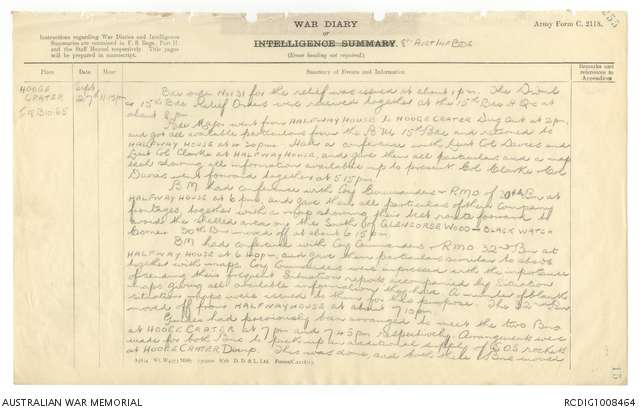 WAR DIARY
or
INTELLIGENCE SUMMARY. 8th Aust Inf Bde
(Erase heading not required.)
Army Form C. 2118.
Instructions regarding War Diaries and Intelligence
Summaries are contained in F. S. Regs., Part II.
and the Staff Manual respectively. Title pages
will be prepared in manuscript.
Place Date Hour Summary of Events and Information Remarks and references to Appendices
HOOGE CRATER Sept 27th
Bde order No 131 for the relief was issued at about 1 pm. The Divnl
& 15th Bde Relief Orders were received together at the 15th Bde H Qrs at
about 2 pm.
Bde Major went from HALFWAY HOUSE to HOOGE CRATER Dug Out at 2 pm,
and got all available particulars from the B.M. 15th Bde and returned to
HALFWAY HOUSE at 4.20 pm. Held a conference with Lieut Col Davies and
Lieut Col Clarke at HALFWAY HOUSE, and gave them all particulars and a map
each showing all information available up to present. Col Clarke & Col
Davies went forward together at 5.15 pm.
B M had conference with Coy Commanders & RMO of 30th Bn at
HALFWAY HOUSE at 6 pm, and gave them all particulars of their Company
frontages, together with a map showing their best route forward to
avoid the shelled area on the South of GLENCORSE WOOD - BLACK WATCH
Corner. 30th Bn moved off at about 6.15 pm.
BM had conference with Coy Commanders & RMO 32nd Bn at
HALFWAY HOUSE at 6.40 pm, and gave them particulars similar to above
together with maps. Coy Commanders were impressed with the importance
of sending their frequent Situation reports accompanied by Situation
maps giving all available information they have. A number of blank
situation maps were issued to them for this purpose. The 32nd Bn
moved off from HALFWAY HOUSE at about 7.10 pm.
Guides had previously been arranged to meet the two Bns
at HOOGE CRATER at 7 pm and 7.45 pm respectively. Arrangements were
made for both Bns to pick up an additional supply of SOS rockets
at HOOGE CRATER Dump. This was done, and both these Bns moved
AUSTRALIAN WAR MEMORIAL
RCDIG1008464